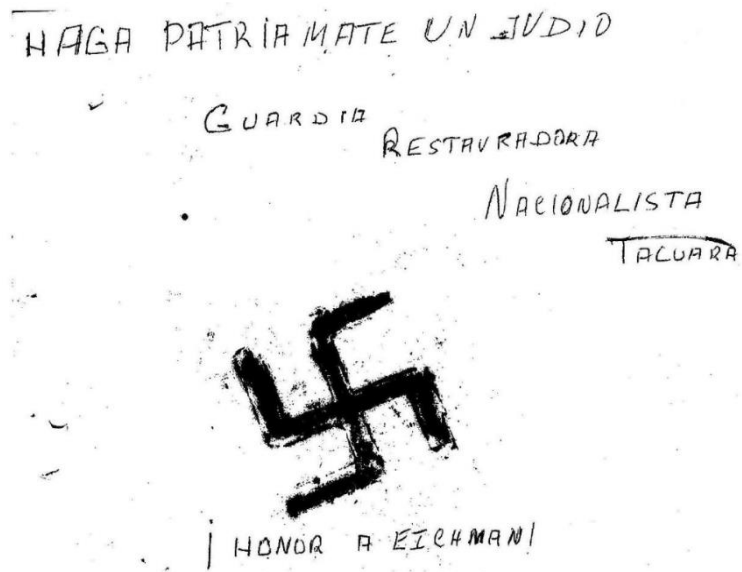 HAGA PATRIA MATE UN JUDIO
GUARDIA
RESTAURADORA
NACIONALISTA
TACUARA
¡HONOR A EICHMAN!